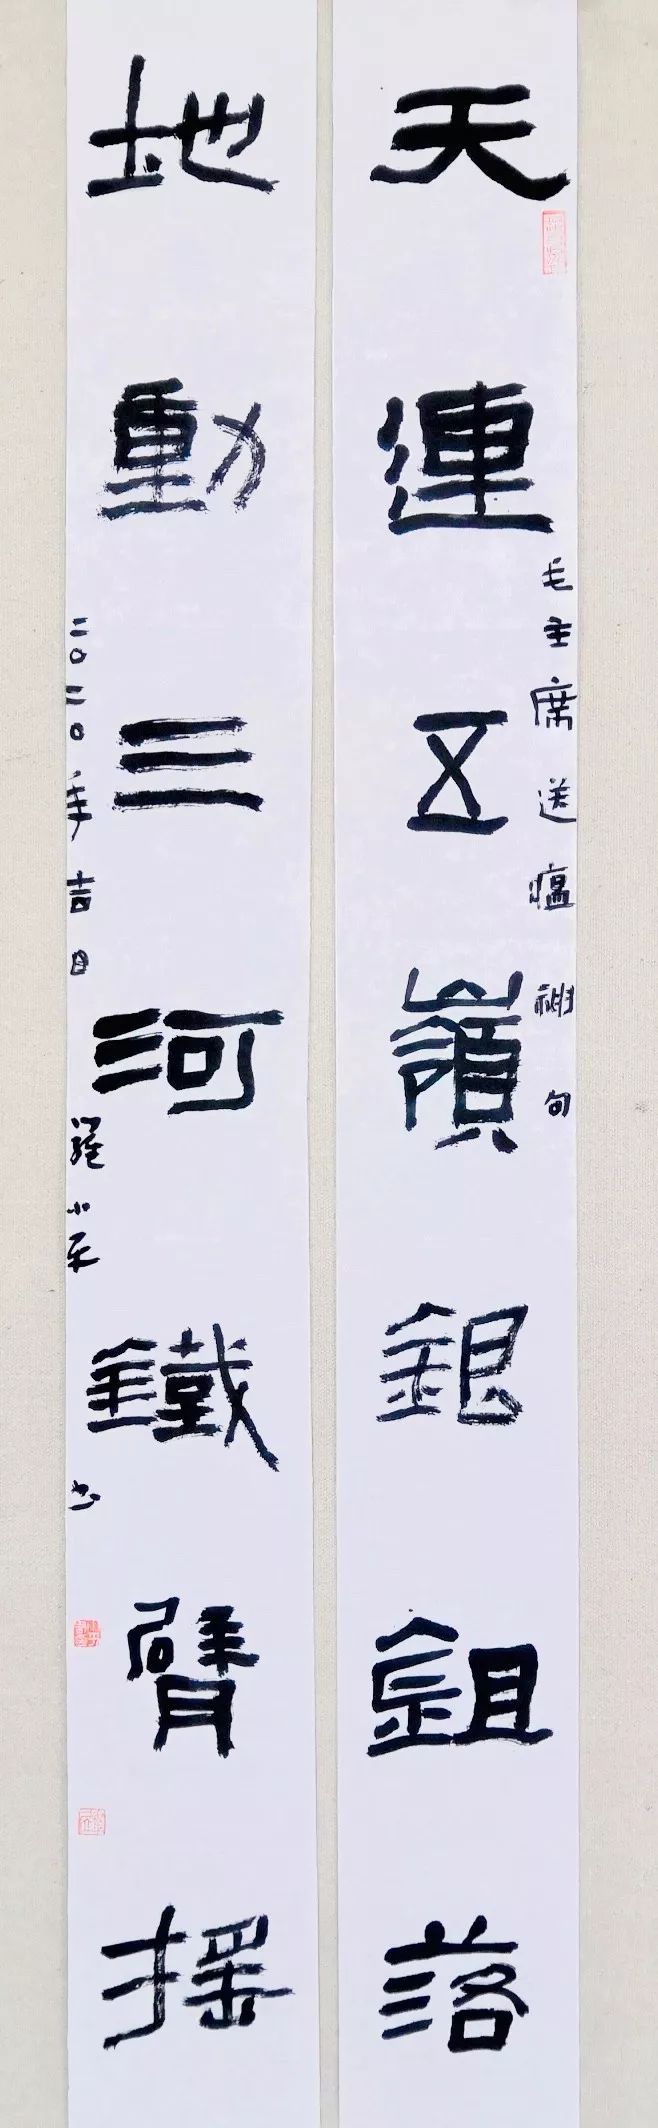 天連五嶺銀鉏落
毛主席送瘟神句
地動三河鐵臂搖
二〇二〇年吉日 羅小平 书